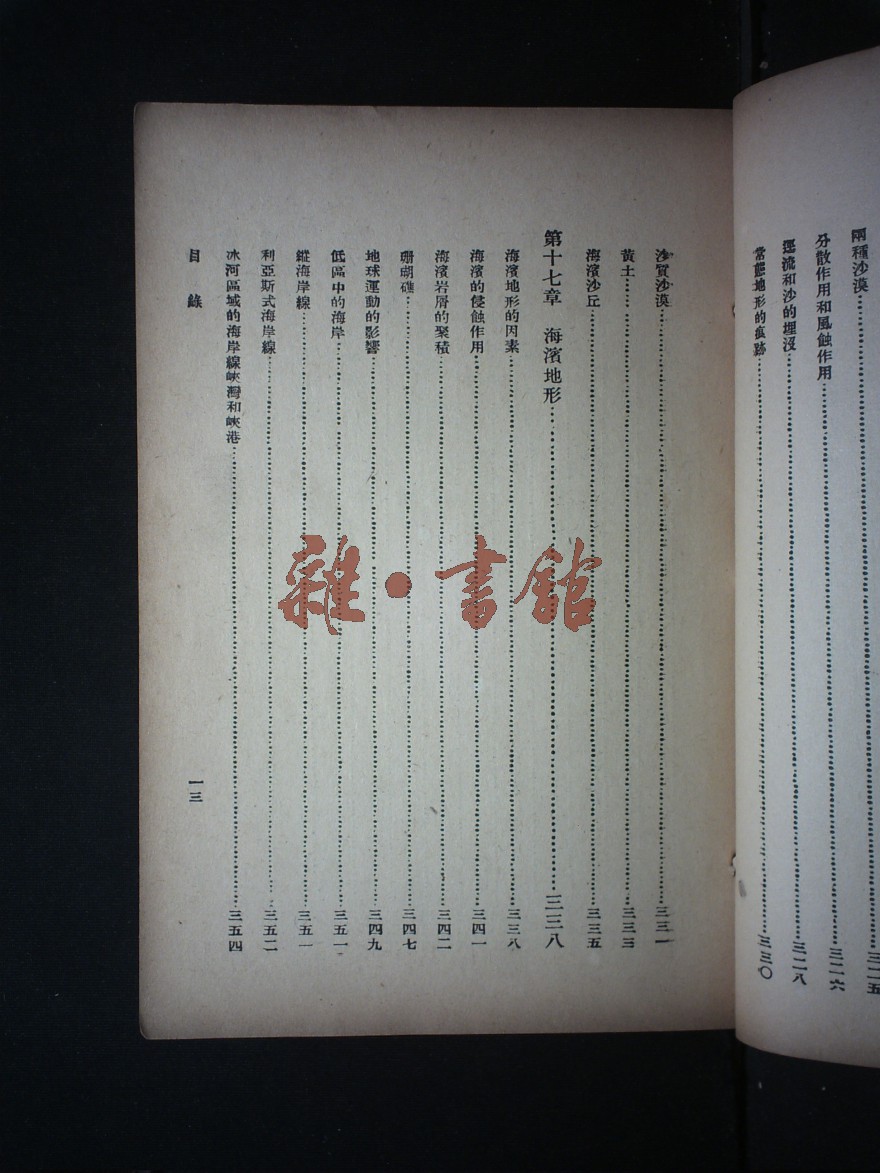 兩種沙漠……三二五
分散作用和風蝕作用……三二六
逕流和沙的埋沒……三二八
常態地形的痕跡……三三〇
沙質沙漠……三三一
黃土……三三三
海濱沙丘……三三五
第十七章 海濱地形……三三八
海濱地形的因素……三三八
海濱的侵蝕作用……三四一
海濱岩屑的聚積……三四二
珊瑚礁……三四七
地球運動的影響……三四九
低區中的海岸……三五一
縱海岸線……三五一
利亞斯式海岸線……三五二
冰河區域的海岸線峽灣和峽港……三五四
目錄
一三
雜·書館